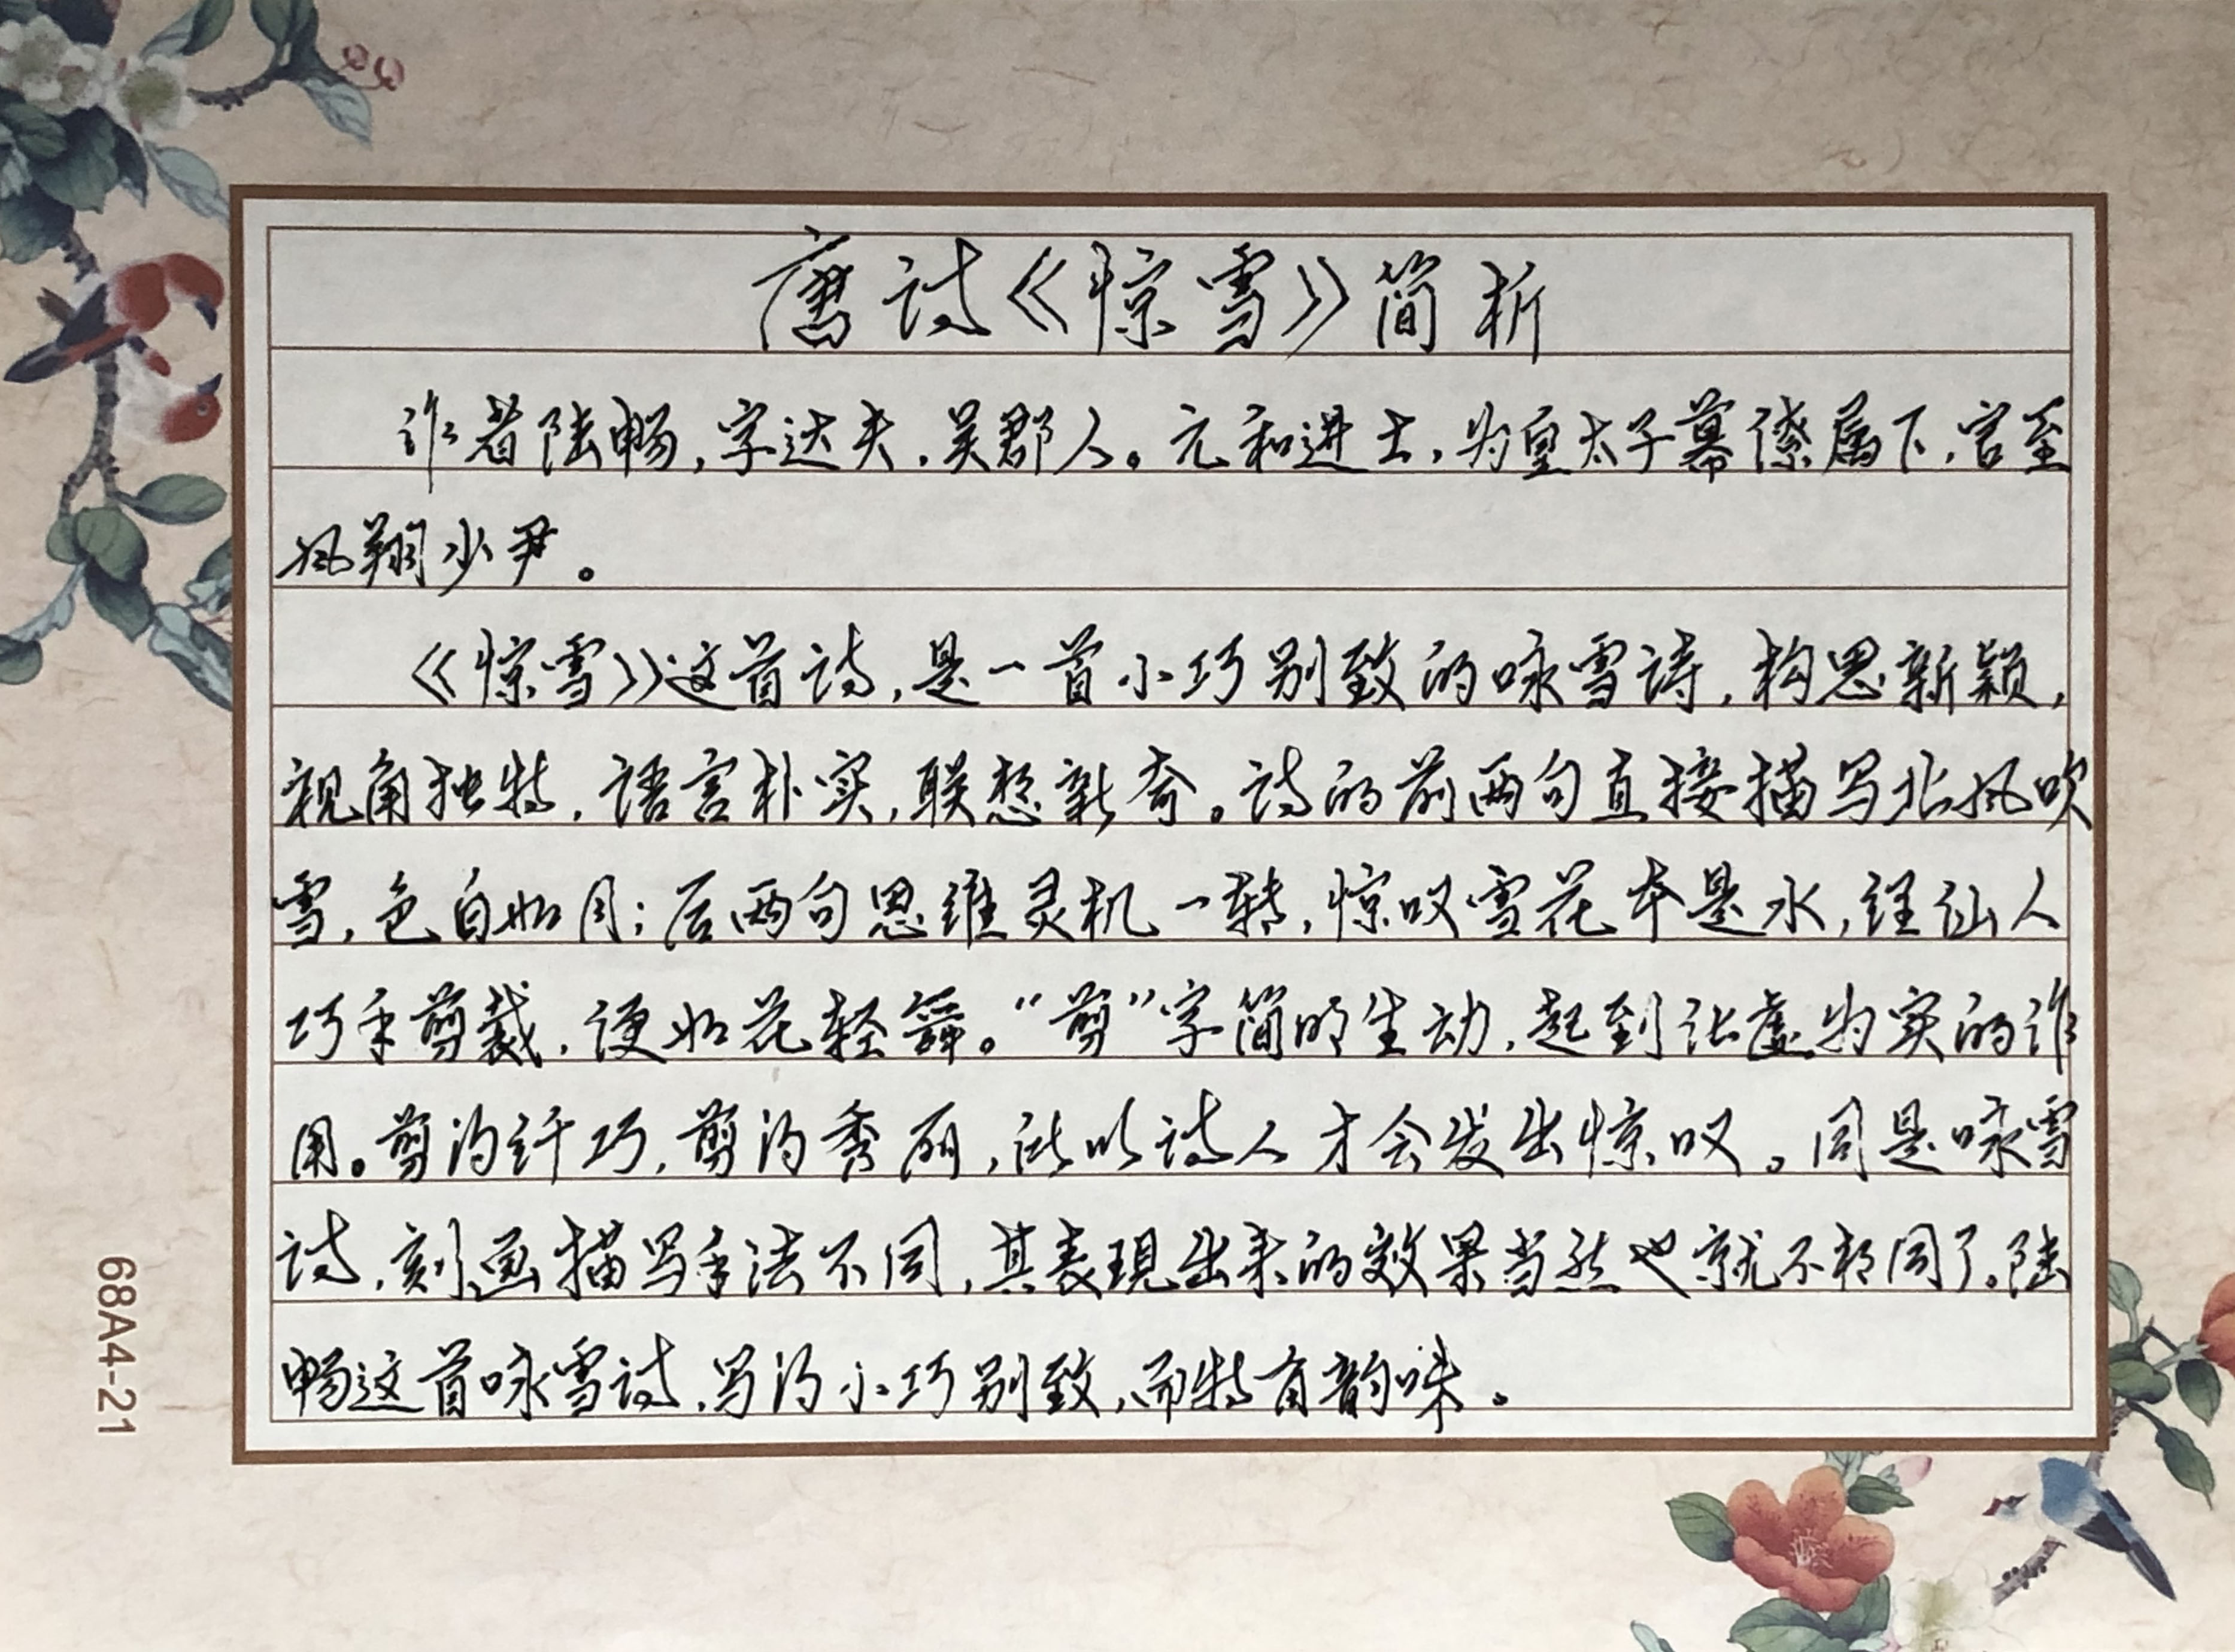 唐诗《惊雪》简析
作者陆畅,字达夫,吴郡人。元和进士,为皇太子幕僚属下,官至
凤翔少尹。
《惊雪》这首诗,是一首小巧别致的咏雪诗,构思新颖,
视角独特,语言朴实,联想新奇。诗的前两句直接描写北风吹
雪,色白如月;后两句思维灵机一转,惊叹雪花本是水,经仙人
巧手剪裁,便如花轻舞。“剪”字简明生动,起到化虚为实的作
用。剪的纤巧,剪的秀丽,所以诗人才会发出惊叹。同是咏雪
诗,刻画描写手法不同,其表现出来的效果当然也就不相同了。陆
畅这首咏雪诗,写的小巧别致,而特有韵味。
68A4-21